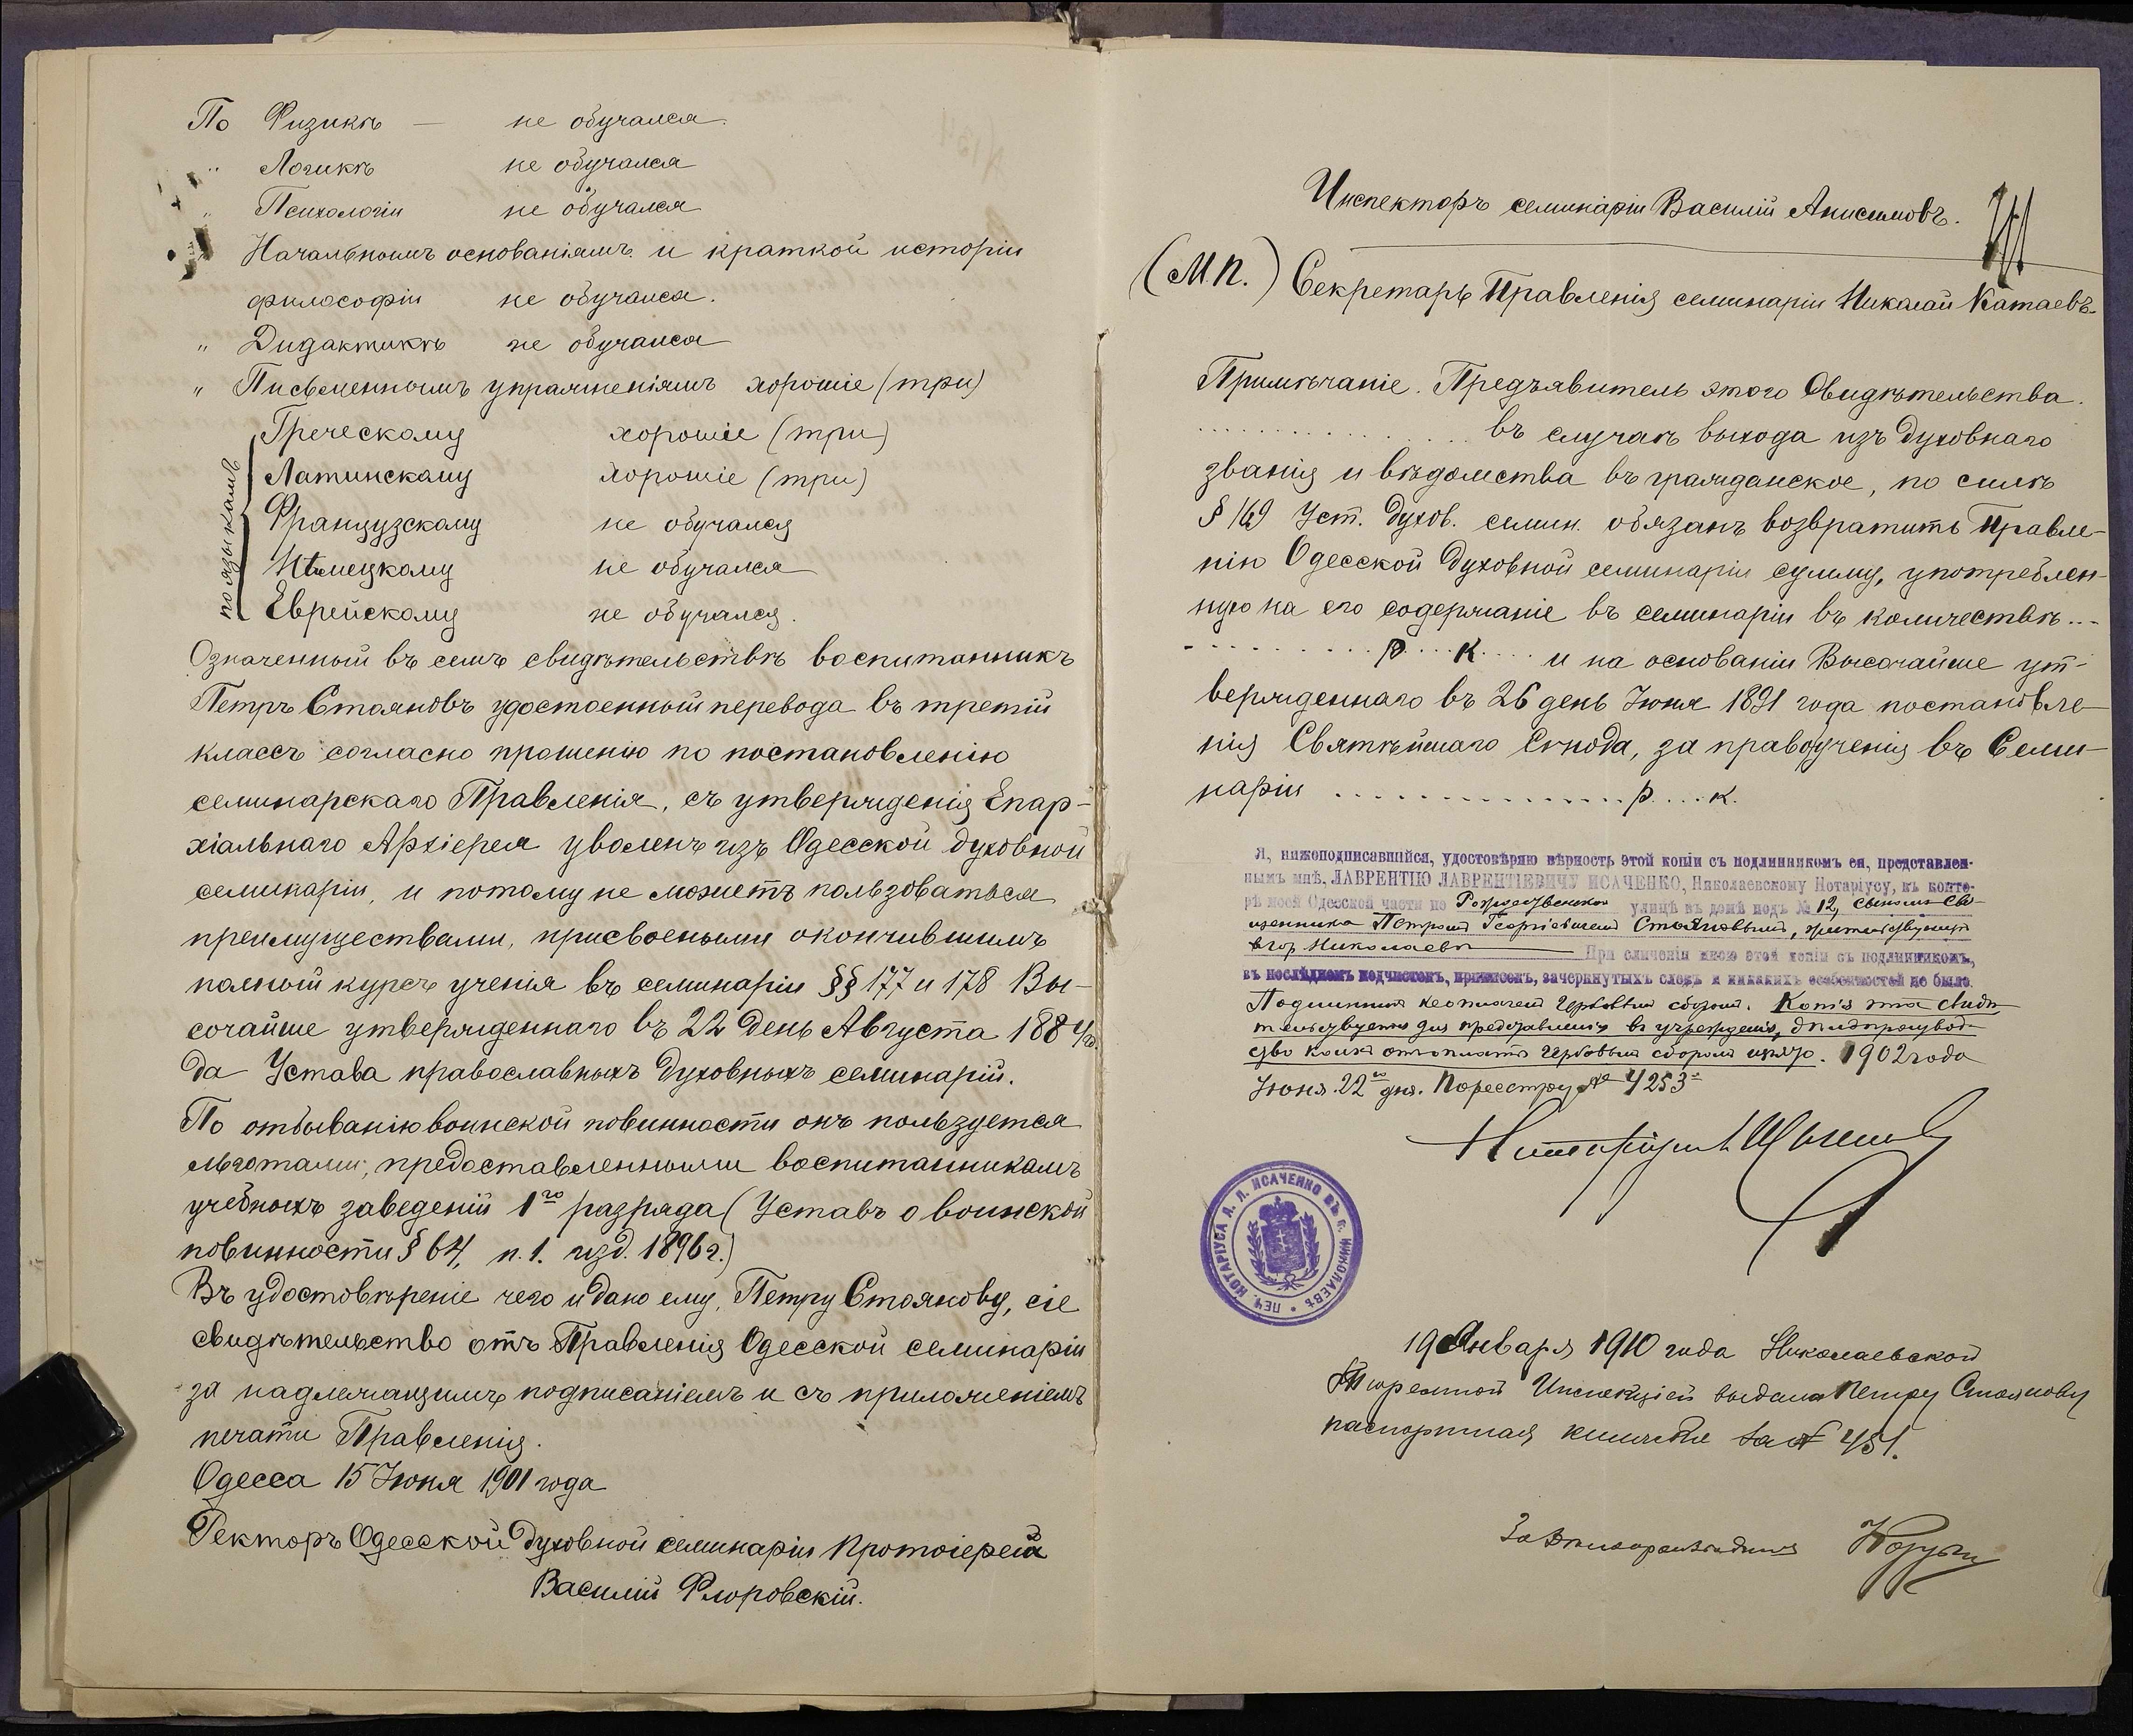 По Физикѣ — не обучался.
" Логикѣ не обучался
" Психологіи не обучался
" Начальнымъ основаніямъ и краткой исторіи
философіи не обучался.
" Дидактикѣ не обучался
" Письменнымъ упражненіямъ хорошіе (три)
по языкамъ
Греческому хорошіе (три)
Латинскому хорошіе (три)
Французскому не обучался
Нѣмецкому не обучался
Еврейскому не обучался.
Означенный въ семъ свидѣтельствѣ воспитанникъ
Петръ Стояновъ удостоенный перевода въ третій
классъ согласно прошенію по постановленію
семинарскаго Правленія, съ утвержденія Епар-
хіальнаго Архіерея уволенъ изъ Одесской духовной
семинаріи, и потому не можетъ пользоваться
преимуществами, присвоеными окончившимъ
полный курсъ ученія въ семинаріи §§ 177 и 178 Вы-
сочайше утвержденнаго въ 22 день Августа 1884 го-
да Устава православныхъ духовныхъ семинарій.
По отбыванію воинской повинности онъ пользуется
льготами, предоставленными воспитанникамъ
учебныхъ заведеній 1го разряда (Уставъ о воинской
повинности § 64, п. 1. изд. 1896 г.)
Въ удостовѣреніе чего и дано ему, Петру Стоянову, сіе
свидѣтельство отъ Правленія Одесской семинаріи
за надлежащимъ подписаніемъ и съ приложеніемъ
печати Правленія.
Одесса 15 Іюня 1901 года
Ректоръ Одесской духовной семинаріи Протоіерей
Василій Флоровскій.
Инспекторъ семинаріи Василій Анисимовъ.
(М.П.) Секретарь Правленія семинаріи Николай Катаевъ.
Примѣчаніе. Предъявитель этого Свидѣтельства.
................ въ случаѣ выхода изъ духовнаго
званія и вѣдомства въ гражданское, по силѣ
§ 169 Уст. духов. семин. обязанъ возвратить Правле-
нію Одесской духовной семинаріи сумму, употреблен-
ную на его содержаніе въ семинаріи въ количествѣ...
.......... р.... к.... и на основаніи Высочайше ут-
вержденнаго въ 26 день Іюня 1891 года постановле-
нія Святѣйшаго Сѵнода, за право ученія въ Семи-
наріи ................ р.... к.
Я, нижеподписавшійся, удостовѣряю вѣрность этой копіи съ подлинникомъ ея, представлен-
нымъ мнѣ, ЛАВРЕНТІЮ ЛАВРЕНТІЕВИЧУ ИСАЧЕНКО, Николаевскому Нотаріусу, въ конто-
рѣ моей Одесской части по Рождественской улицѣ въ домѣ подъ № 12, сыномъ свя-
щенника Петромъ Георгіевичемъ Стояновымъ, жительствующимъ
въ гор. Николаевѣ — При сличеніи мною этой копіи съ подлинникомъ,
въ послѣднемъ подчистокъ, приписокъ, зачеркнутыхъ словъ и никакихъ особенностей не было.
Подлинникъ неоплаченъ гербовымъ сборомъ. Копія эта свидѣ-
тельствуется для представленія въ учрежденія, дѣлопроизвод-
ство коихъ оплаты гербовымъ сборомъ изъято. 1902 года
Іюня 22го дня. По реестру № 4253
Нотаріусъ
ПЕЧ. НОТАРІУСА Л. Л. ИСАЧЕНКО ВЪ г. НИКОЛАЕВѢ
19 Января 1910 года Николаевской
Тюремной Инспекціей выдана Петру Стоянову
паспортная книжка за № 451.
За Дѣлопроизводителя